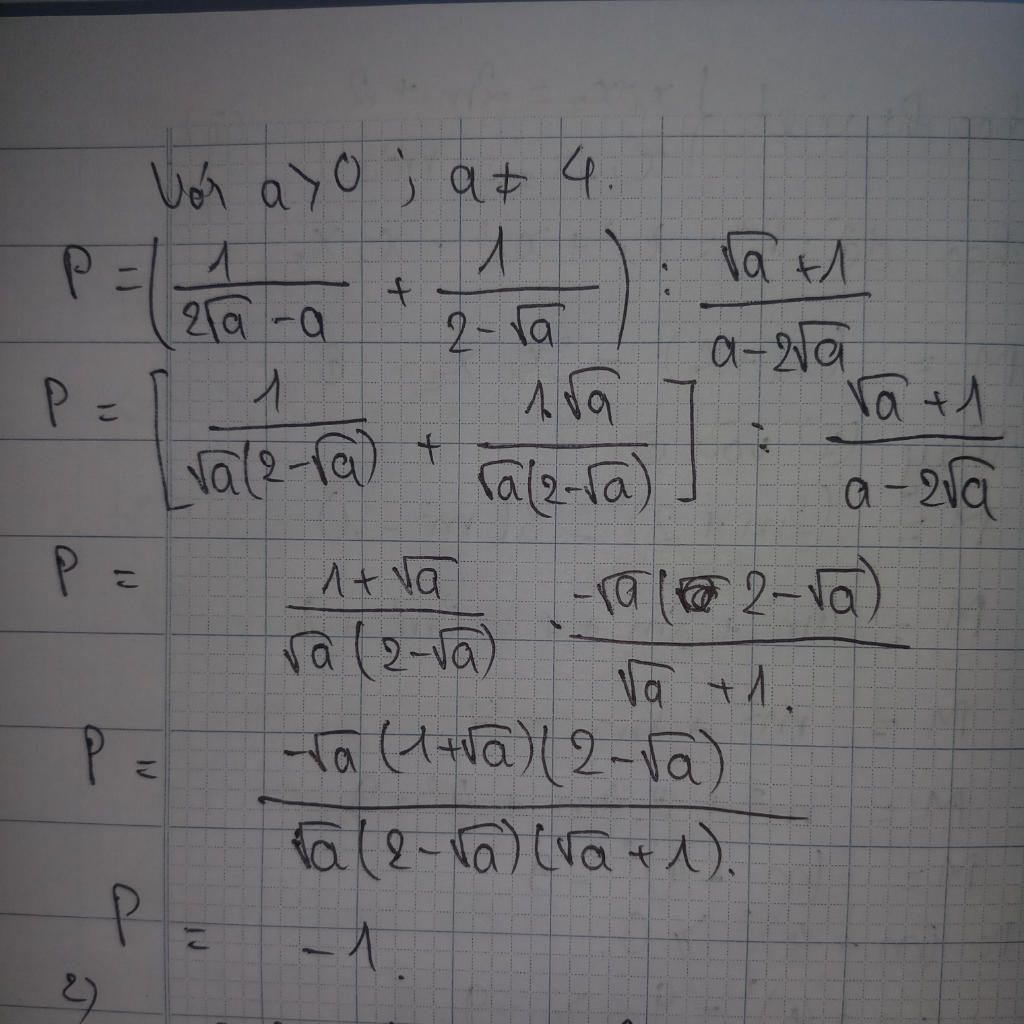 Với a > 0 ; a ≠ 4.
P = ( 1/(2√a - a) + 1/(2 - √a) ) : (√a + 1)/(a - 2√a)
P = [ 1/(√a(2 - √a)) + 1.√a/(√a(2 - √a)) ] : (√a + 1)/(a - 2√a)
P = (1 + √a)/(√a(2 - √a)) . -√a(2 - √a)/(√a + 1).
P = -√a(1 + √a)(2 - √a)/(√a(2 - √a)(√a + 1)).
P = -1.
2)